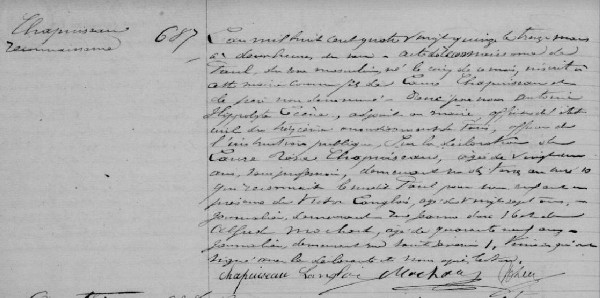 Chapuiseau
reconnaissance
687
L'an mil huit cent quatre vingt quinze le treize mars
à deux heures du soir - acte de reconnaissance de
Paul, du sexe masculin, né le cinq de ce mois, inscrit à
cette mairie comme fils de Laure Chapuiseau et
de père non dénommé - Dressé par nous Antoine
Hippolyte, adjoint au maire, officier de l'état
civil du treizième arrondissement de Paris, officier de
l'instruction publique, sur la déclaration de
Laure Rose Chapuiseau, âgée de vingt
ans, sans profession, demeurant
qui reconnait le susdit Paul pour son enfant en
présence de Victor Langlois, âgé de vingt sept ans,
journalier, demeurant et de
Alfred Mochon, âgé de quarante cinq ans,
journalier, demeurant 1, témoins qui ont
signé avec la déclarante et nous après lecture.
Chapuiseau Langlois Mochon